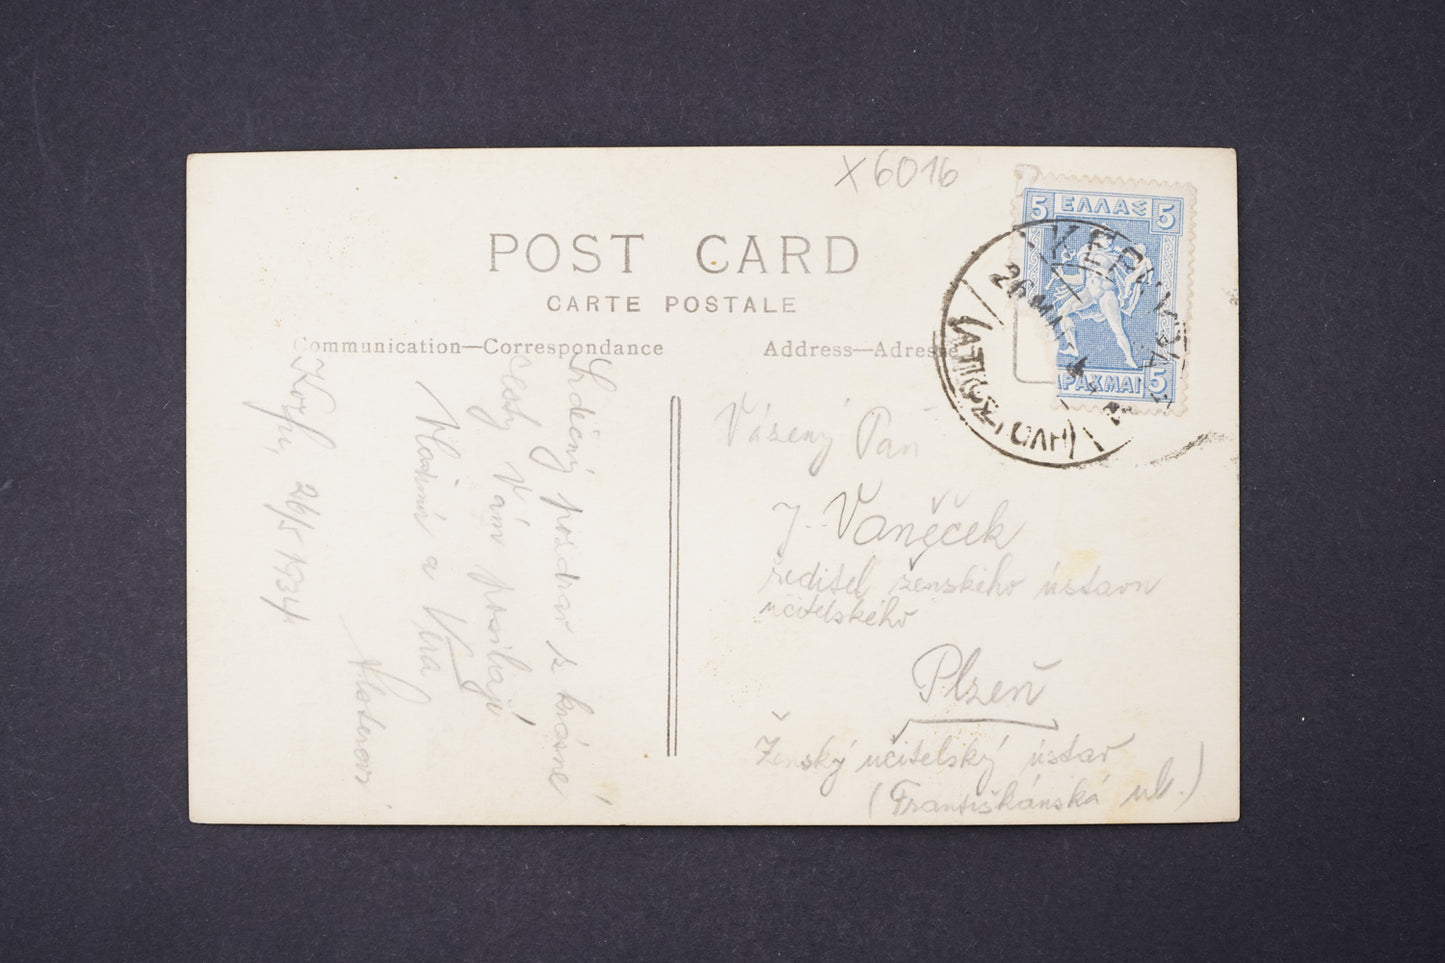 X6016
5 ΕΛΛΑΣ 5
POST CARD
CARTE POSTALE
Communication—Correspondance
Address—Adresse
ΔΡΑΧΜΑΙ 5
26 ΜΑΙ
Srdečný pozdrav z krásné
cesty Vám posílají
Vladimír a Věra
Korfu, 26/5 1934
Vážený Pan
J. Vaněček
ředitel ženského ústavu
učitelského
Plzeň
Ženský učitelský ústav
(Františkánská ul.)